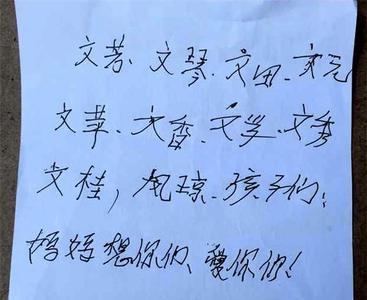 文芬、文琴、文田、文元
文苹、文香、文学、文秀
文桂，凤琼、孩子们：
妈妈想你们、爱你们！